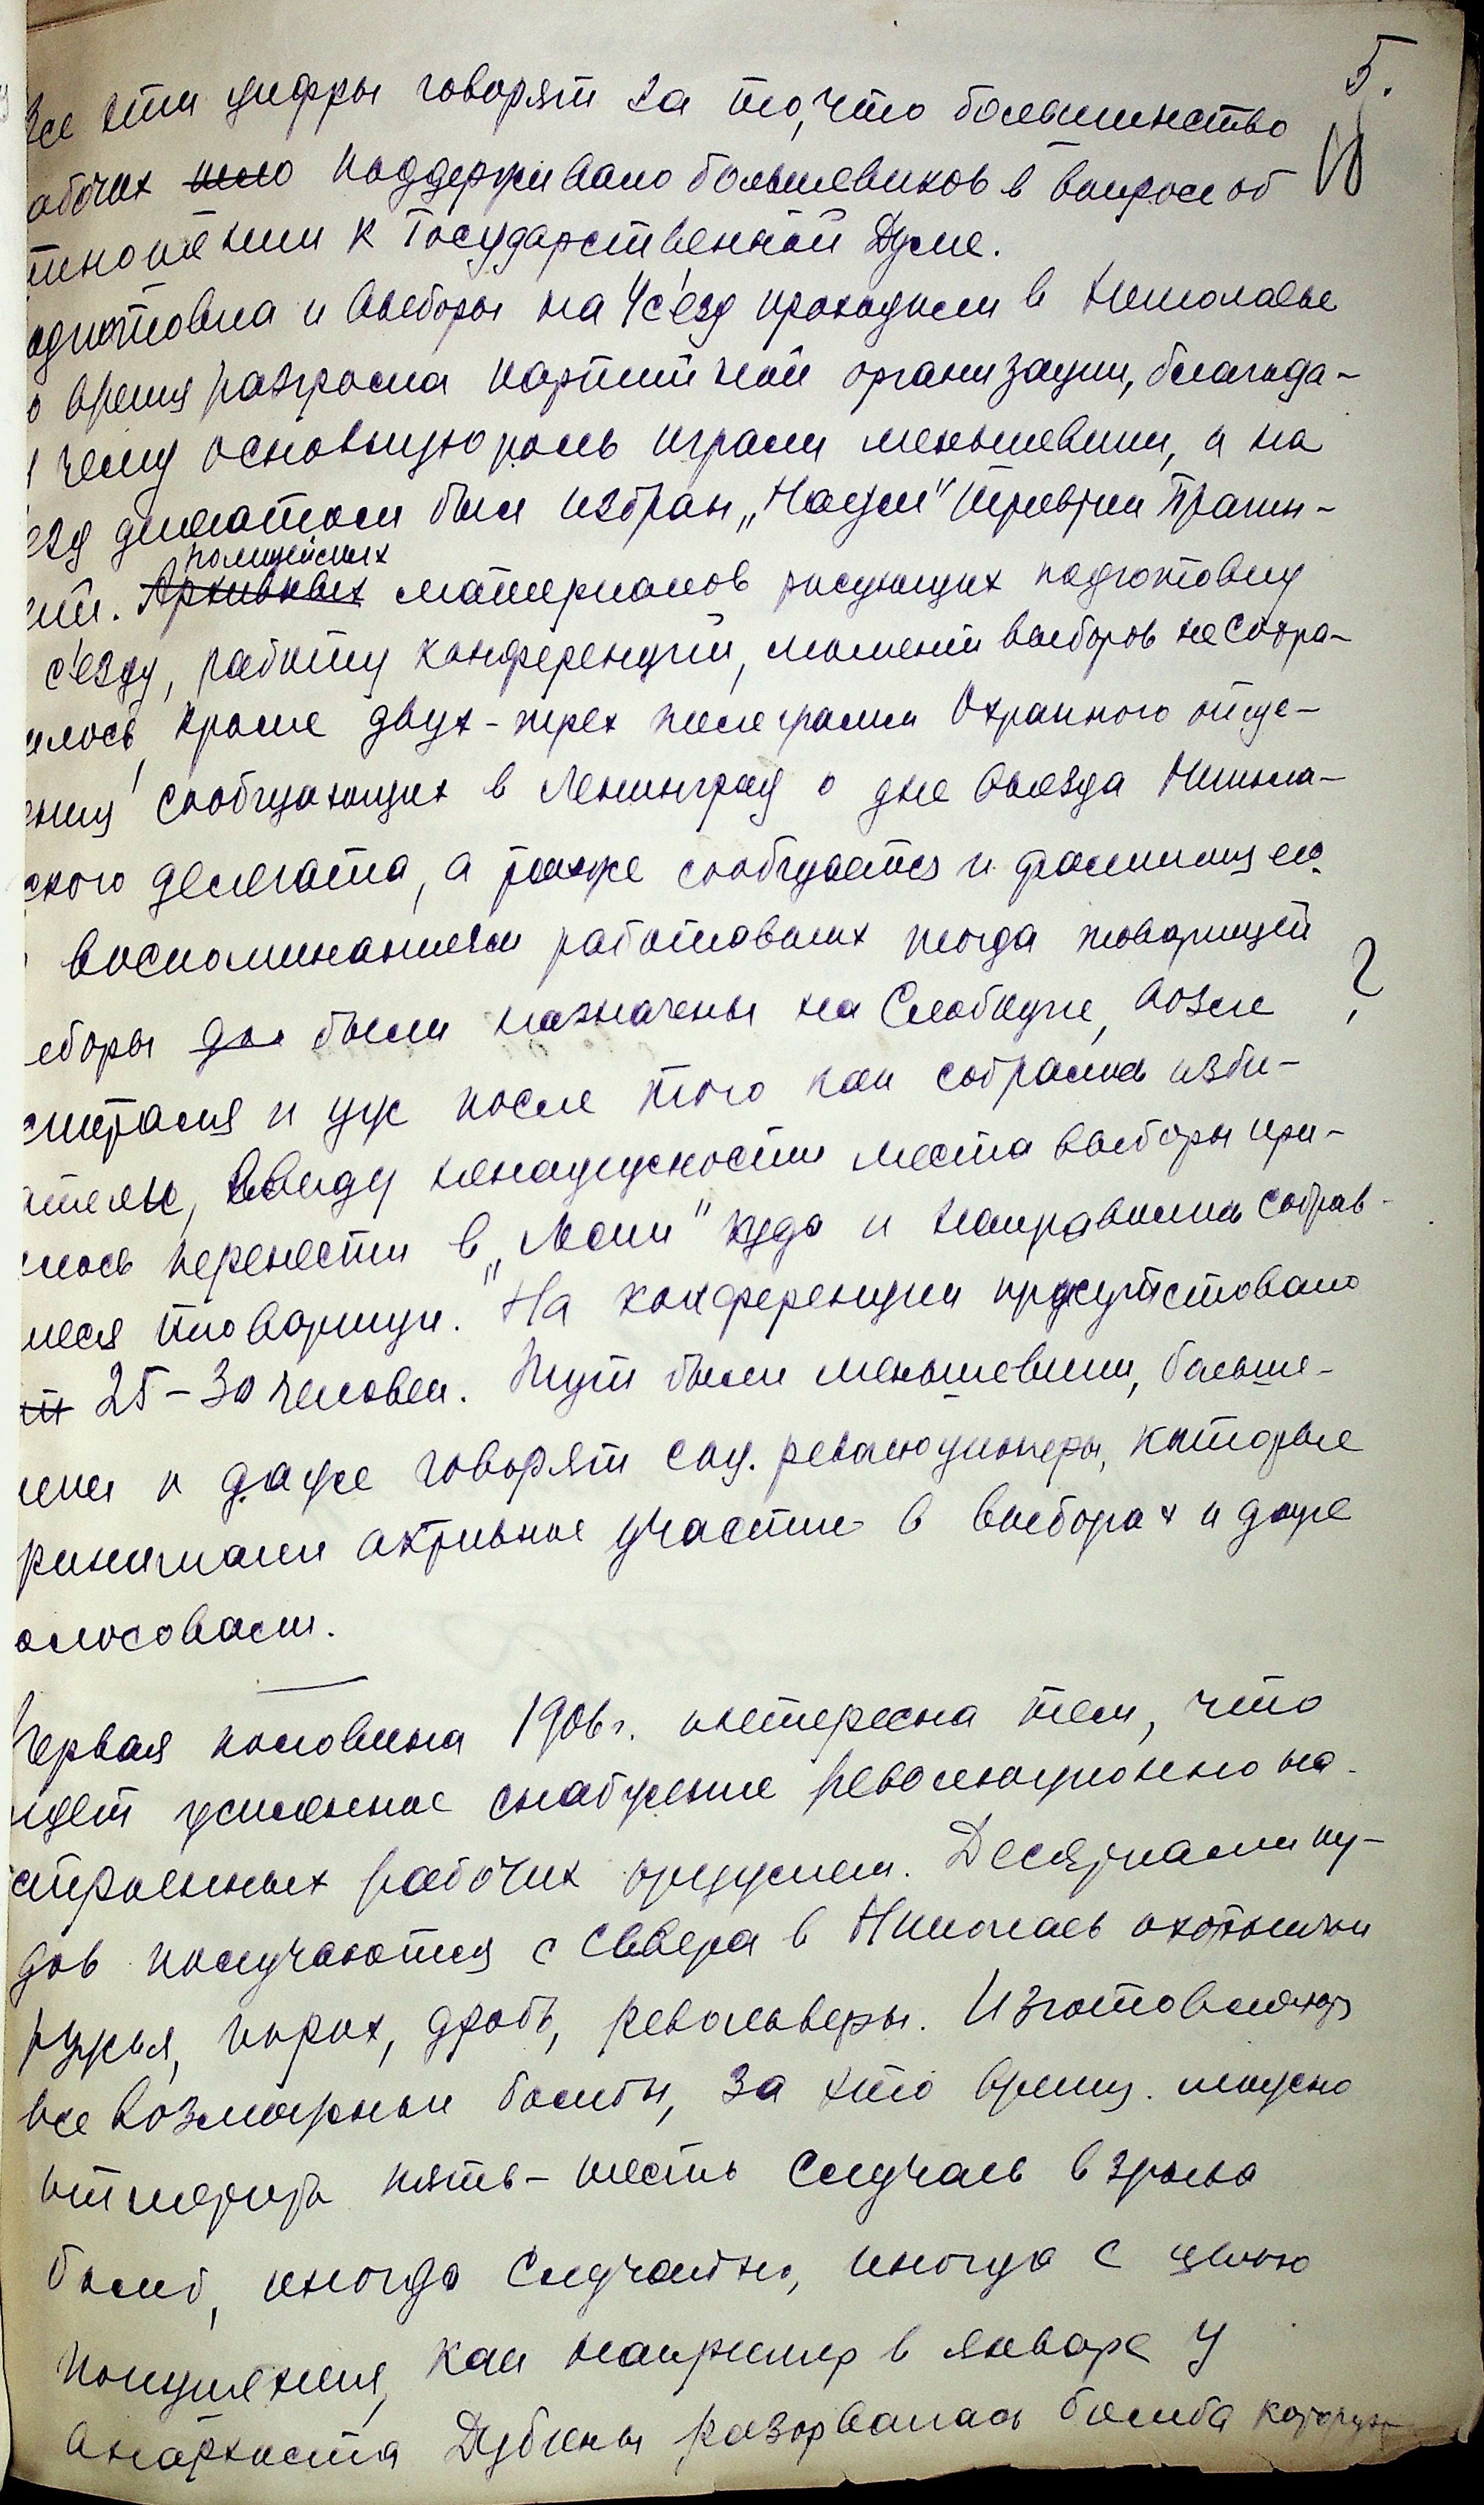 5.
Все эти цифры говорят за то, что большинство
абочих шло поддерживало большевиков в вопросе об
тношении к Государственной Думе.
одготовка и выборы на 4 с'езд проходили в Николаеве
о время разгрома партийной организации, благода-
чему основную роль играли меньшевики, а на
езд делегатом был избран „Наум"
полицейских
Архивных материалов рисующих подготовку
с'езду, работу конференции, моменты выборов не сохра-
илось, кроме двух-трех телеграмм Охранного отде-
ения сообщающих в Ленинград о дне выезда Никола-
ского делегата, а также сообщается и фамилия его.
воспоминаниям работавших тогда товарищей
ыборы были назначены на Слободке, возле ?
спиталя и уже после того как собрались изби-
атели, ввиду ненадежности места выборы при-
шлось перенести в „Лески" куда и направились собрав-
иеся товарищи." На конференции присутствовало
25-30 человек. Тут были меньшевики, больше-
ики и даже говорят соц. революционеры, которые
ринимали активное участие в выборах и даже
олосовали.
Первая половина 1906 г. интересна тем, что
идет усиленное снабжение революционно на-
строенных рабочих оружием. Десятками пу-
дов получаются с Севера в Николаев охотничьи
ружья, порох, дробь, револьверы. Изготовляют
все возможные бомбы, за это время можно
отметить пять-шесть случаев взрыва
бомб, иногда случайно, иногда с целью
покушения, как например в январе у
анархиста Дубины разорвалась бомба которую